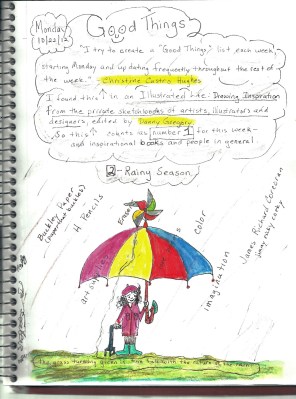 Monday
10/22/12
Good Things
"I try to create a "Good Things" list each week,
starting Monday and updating frequently throughout the rest of
the week." - Christine Castro Hughes
I found this ↑ in an Illustrated Life: Drawing Inspiration
from the private sketchbooks of artists, illustrators and
designers, edited by Danny Gregory.
So this ↑ counts as number 1 for this week -
and inspirational books and people in general.
2 - Rainy Season
Buckley Paper
4 Pencils
Eraser
color
imagination
James Richard Corcoran
jimmy corky corky
The grass turning green is
with the return of the rain